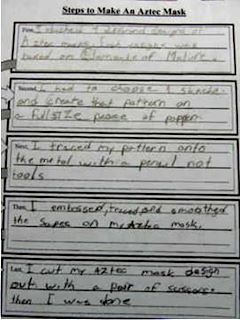 Steps to Make An Aztec Mask
First, I sketched 4 different designs of
Aztec masks
based on Elements of Nature.
Second, I had to choose 1 sketch
and create that pattern on
a full size peace of papper.
Next, I traced my pattern onto
the metal with a pencil not
tools
Then, I embossed, traced, and smoothed
the Sapes on my Aztec mask.
Last, I cut my Aztec mask design
out with a pair of scissors.
then I was done